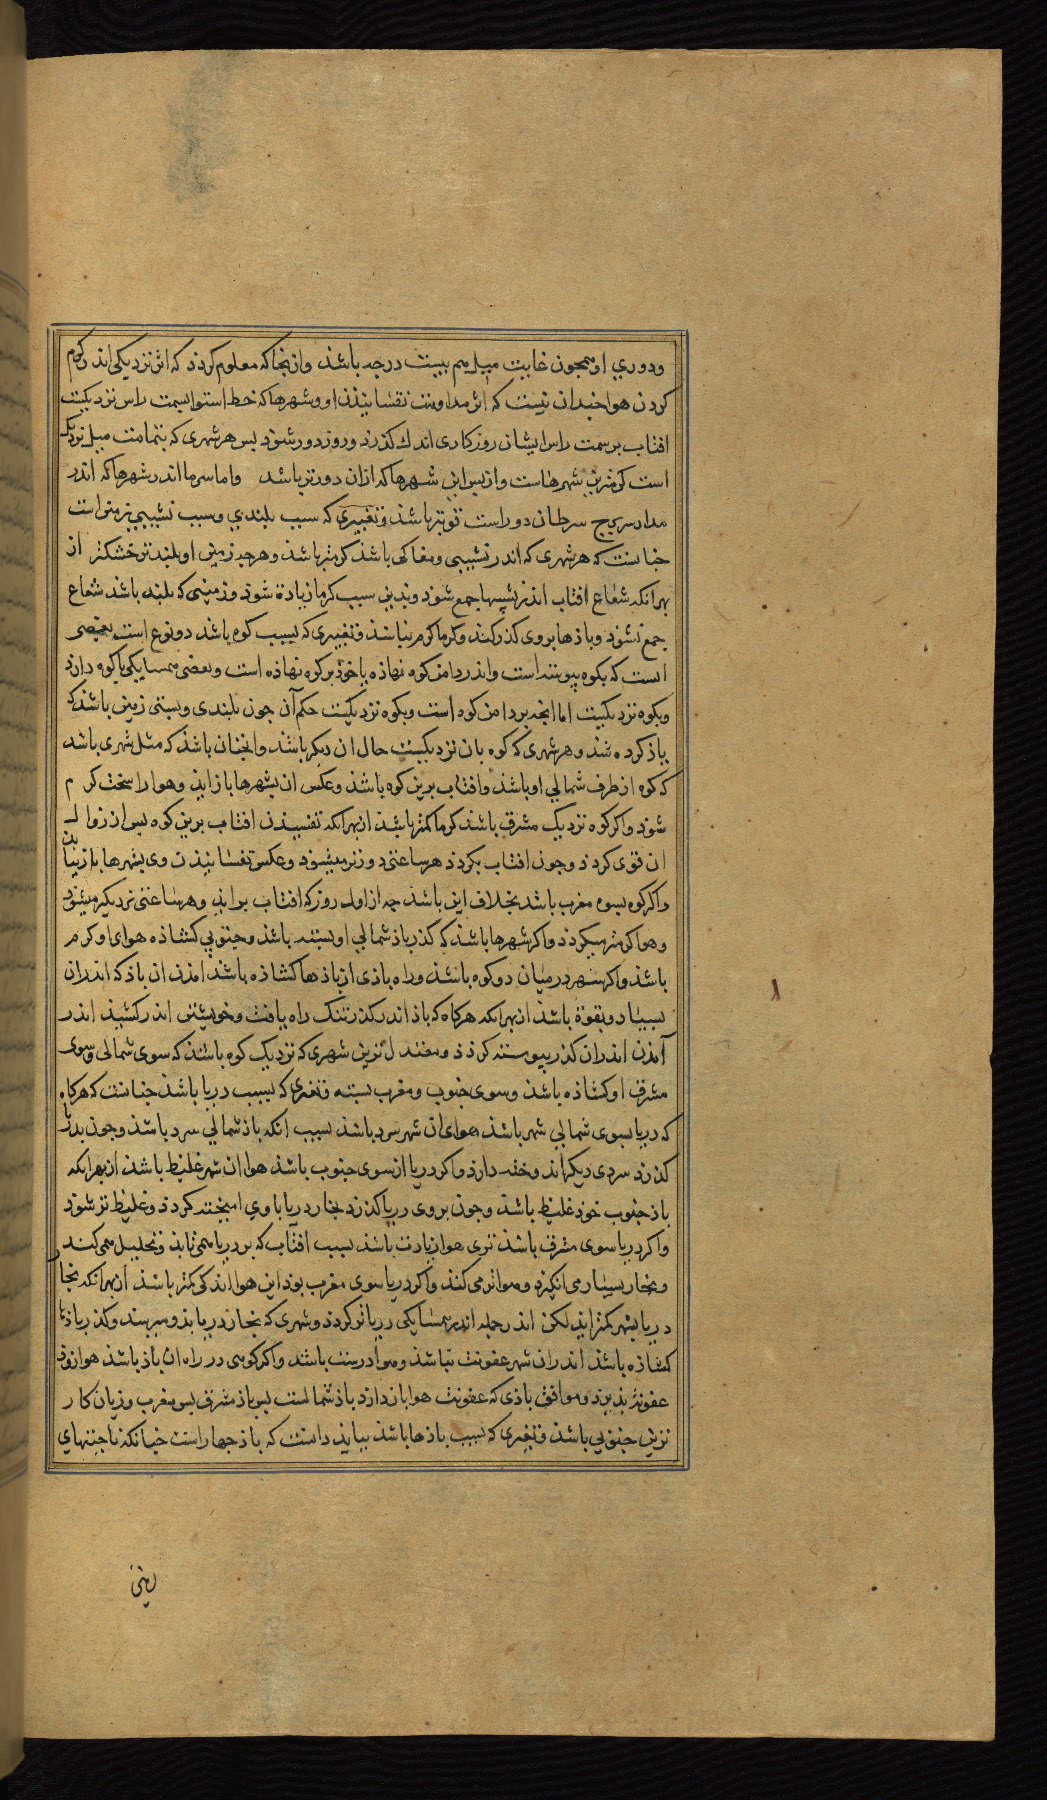 ودوري او همچون غایت میل هم بیست درجه باشذ وازینجا که معلوم کردذ که اثر نزدیکی اندر کرم
کردن هوا چندان نیست که اثر مداومت او وشهرها که خط استوا بسمت راس نزدیکست
افتاب بر سمت راس ایشان روزکاری اندك کذرد وروز دور شوذ بس هر شهری که بتمامت میل نزدیک
است کرمترین شهرهاست واز بس این شهرها که ازان دورتر باشد واما سرما اندر شهرها که اندر
مدار سرطان دوراست قویتر باشذ وتغییری که سبب بلندي وسبب نشیبی زمین است
جنانست که هر شهری که اندر نشیبی ومغاکی باشذ کرمتر باشذ وهرچه زمین او بلندتر خشکتر از
بهر انکه شعاع افتاب اندر نشیبها جمع شوذ وبدین سبب کرما زیادة شوذ وزمینی که بلند باشذ شعاع
جمع نشوذ وباذها بروی کذر کند وکرما کرم نباشذ وتغییری که بسبب کوه باشذ دو نوع است بعضی
انست که بکوه پیوسته است واندر دامن کوه نهاذه یا خوذ بر کوه نهاذه است وبعضی همسایکی با کوه دارذ
وبکوه نزدیکیست اما انچه بر دامن کوه است وبکوه نزدیکیست حکم آن چون بلندی وبستی زمین باشذ که
یاذ کرده شذ وهر شهری که کوه بان نزدیکیست حال ان دیکر باشذ وانچنان باشذ که مثل شهری باشد
که کوه از طرف شمالی او باشذ وافتاب برین کوه باشذ وعکس ان بشهرها باز ایذ وهوا را سخت کرم
شوذ واکر کوه نزدیک مشرق باشذ کرما کمتر باشذ ازبهرانکه تفسیذن افتاب برین کوه بس از زوال
ان قوی کردذ وچون افتاب بکردذ هر ساعتی دورتر میشوذ وعکس تفسانیذن وی بشهرها باز نیاید
واکر کوه بسوء مغرب باشد بخلاف این باشذ چه از اول روز که افتاب بر ایذ وهر ساعتی نزدیکتر میشوذ
وهوا کرمتر میکردذ واکر شهرها باشذ که کذر باذ شمالی او بسته باشذ وجنوبی کشاذه هوای او کرم
باشذ واکر شهر درمیان دو کوه باشذ وراه باذی از باذها کشاذه باشذ امذن ان باذ که اندران
بسیار وبقوة باشذ ازبهرانکه هرکاه که باذ اندر کذر تنک راه یافت وخویشتن اندر کشیذ اندر
آمذن اندران کذر پیوسته کردذ ومعتدل ترین شهری که نزدیک کوه باشذ که سوی شمالی وسوی
مشرق او کشاذه باشذ وسوی جنوب ومغرب بسته وتغیری که بسبب دریا باشذ جنانست که هرکاه
که دریا بسوی شمالی شهر باشذ هوای ان شهر سرد باشذ بسبب انکه باذ شمالی سرد باشذ وچون بدریا
کذرذ سردی دیکر اندوخته دارذ واکر دریا از سوی جنوب باشذ هوا ان شهر غلیظ باشذ ازبهرانکه
باذ جنوب خوذ غلیظ باشذ وچون بروی دریا کذرذ بخار دریا باوی امیخته کردذ وغلیظ تر شوذ
واکر دریا سوی مشرق باشذ تری هوا زیادت باشذ بسبب افتاب که بر دریا همی تابذ وتحلیل همی کند
وبخار بسیار می انکیزد وهوا تر می کنذ واکر دریا سوی مغرب بوذ این هوا اندکی کمتر باشذ ازبهرانکه بخار
دریا بشهر کمتر ایذ لکن اندر جمله اندر همسایکی دریا تر کردذ وشهری که بخار دریا بذو رسذ وکذر باذها
کشاذه باشذ اندران شهر عفونت نباشذ وهوا درست باشد واکر کوهی در راه ان باذ باشذ هوا زوذ
عفونة بذیرذ وموافق باذی که عفونت هوا باز دارذ باذ شمالست بس باذ مشرق بس مغرب وزیان کار
ترین جنوبی باشذ وتغیری که بسبب باذها باشذ ببایذ دانست که باذ چهار است چنانکه ناحیتهای
زمین